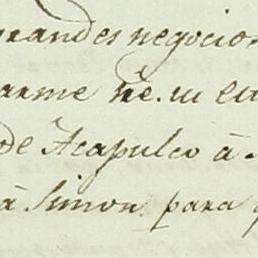 grandes negocios
arme
de Acapulco à
à Simon para